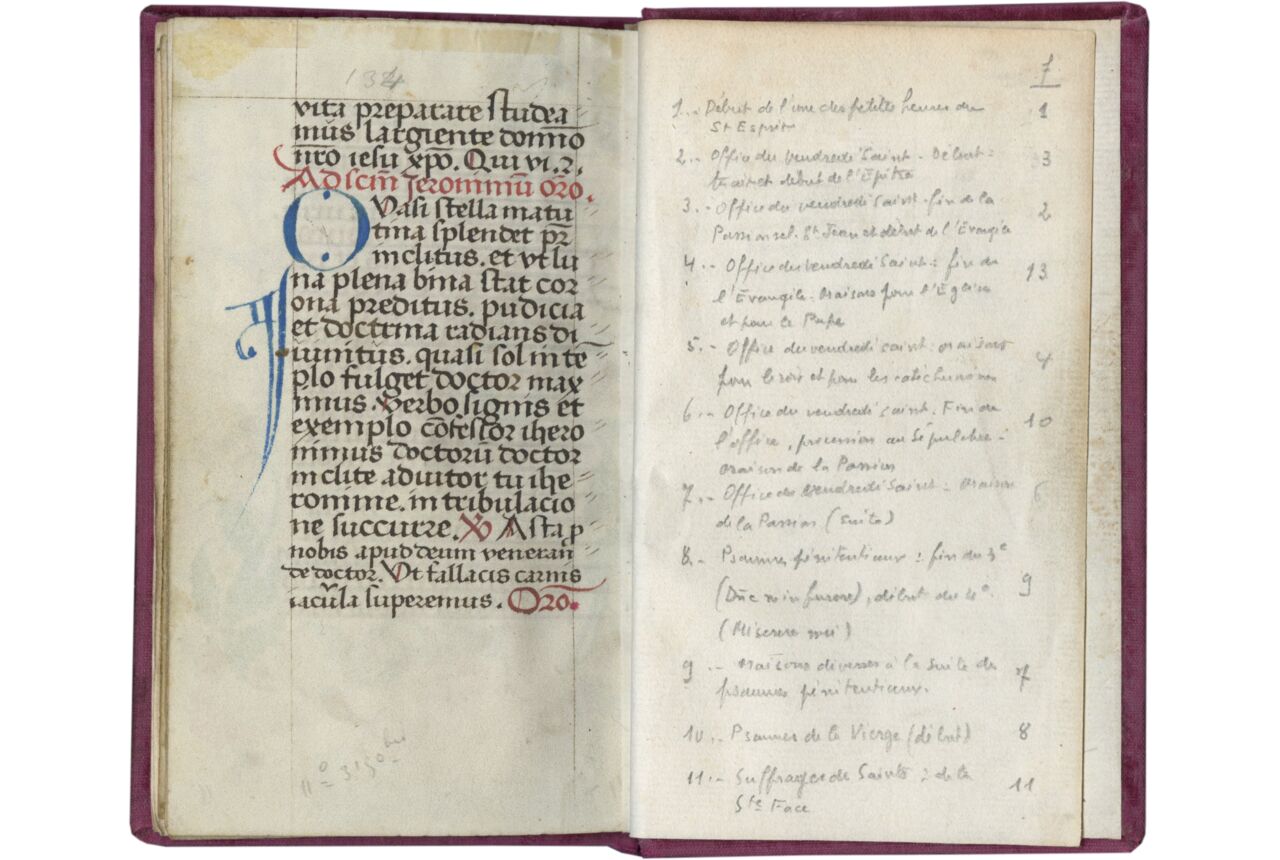 134
vita preparare studea
mus largiente domno
nro iesu xpo. Qui vi.
Ad scm Jeronimu oro.
Quasi stella matu
tina splendet pr
inclitus. et vt lu
na plena bina stat cor
ona preditus. pudicia
et doctrina radians di
uinitus. quasi sol in te
plo fulget doctor max
imus. Verbo signis et
exemplo cofessor ihero
nimus doctoru doctor
inclite adiutor tu ihe
ronime. in tribulacio
ne succurre. Asta p
nobis apud deum veneran
de doctor. Vt fallacis carnis
iacula superemus. Oro.
1
1.- Début de l'une des petites heures du 1
St Esprit
2.- Office du vendredi Saint - Début : 3
trait et début de l'Epitre
3.- Office du vendredi Saint - fin de la 2
Passion sel. St Jean et début de l'Evangile
4.- Office du vendredi Saint : fin de 13
l'Evangile. Oraisons pour l'Eglise
et pour le Pape
5.- Office du vendredi saint : oraisons 4
pour le roi et pour les catéchumènes
6.- Office du vendredi saint. Fin de 10
l'office, procession au Sépulchre -
oraison de la Passion
7.- Office du Vendredi Saint : Oraison 6
de la Passion (suite)
8.- Psaumes pénitentiaux : fin du 3e 9
(Dne ne in furore), début du 4e
(Miserere mei)
9.- Oraisons diverses à la suite des 7
psaumes pénitentiaux.
10.- Psaumes de la Vierge (début) 8
11.- Suffrages de Saints : de la 11
Ste Face